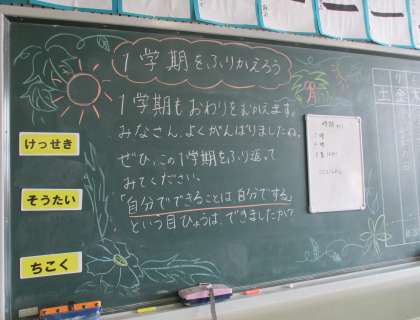 1学期をふりかえろう
1学期もおわりをむかえます。
みなさん、よくがんばりましたね。
ぜひ、この1学期をふり返って
みてください。
「自分でできることは自分でする」
という目ひょうは、できましたか？
けっせき
そうたい
ちこく
土 金 木